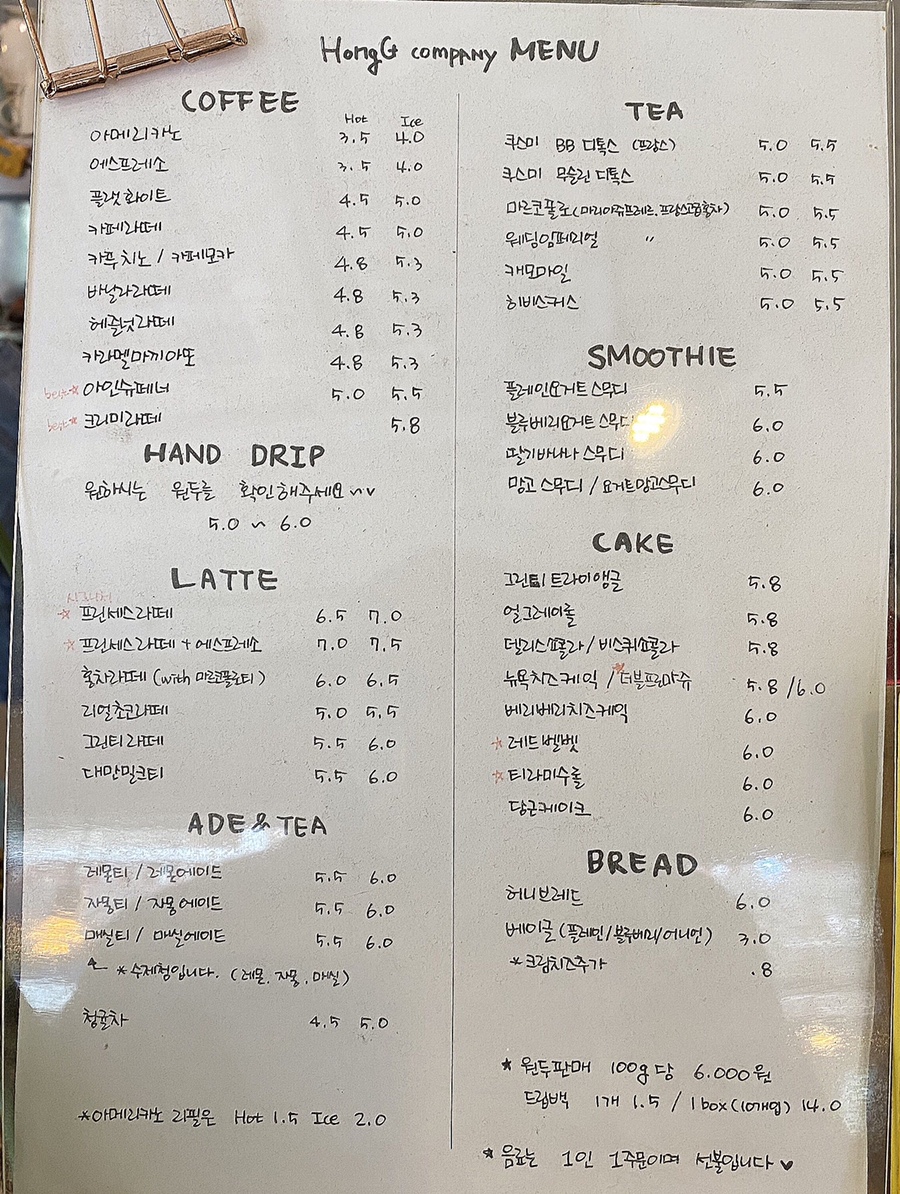 HongG company MENU
COFFEE
Hot Ice
아메리카노 3.5 4.0
에스프레소 3.5 4.0
플랫화이트 4.5 5.0
카페라떼 4.5 5.0
카푸치노 / 카페모카 4.8 5.3
바닐라라떼 4.8 5.3
헤즐넛라떼 4.8 5.3
카라멜마끼아또 4.8 5.3
best ☆ 아인슈페너 5.0 5.5
best ☆ 크리미라떼 5.8
HAND DRIP
원하시는 원두를 확인해주세요~v
5.0 ~ 6.0
LATTE
시그니처
☆ 프린세스라떼 6.5 7.0
☆ 프린세스라떼 + 에스프레소 7.0 7.5
홍차라떼 (with 마르코폴로티) 6.0 6.5
리얼초코라떼 5.0 5.5
그린티라떼 5.5 6.0
대만밀크티 5.5 6.0
ADE & TEA
레몬티 / 레몬에이드 5.5 6.0
자몽티 / 자몽에이드 5.5 6.0
매실티 / 매실에이드 5.5 6.0
* 수제청입니다. (레몬, 자몽, 매실)
청귤차 4.5 5.0
*아메리카노 리필은 Hot 1.5 Ice 2.0
TEA
쿠스미 BB 디톡스 (프랑스) 5.0 5.5
쿠스미 무슬린 디톡스 5.0 5.5
마르코폴로 (마리아쥬프레르, 프랑스고급홍차) 5.0 5.5
웨딩임페리얼 〃 5.0 5.5
캐모마일 5.0 5.5
히비스커스 5.0 5.5
SMOOTHIE
플레인요거트 스무디 5.5
블루베리요거트 스무디 6.0
딸기바나나 스무디 6.0
망고 스무디 / 요거트망고스무디 6.0
CAKE
그린티 트라이앵글 5.8
얼그레이롤 5.8
델리스쇼콜라 / 비스퀴쇼콜라 5.8
뉴욕치즈케익 / ☆더블프로마쥬 5.8 / 6.0
베리베리치즈케익 6.0
☆ 레드벨벳 6.0
☆ 티라미수롤 6.0
당근케이크 6.0
BREAD
허니브레드 6.0
베이글 (플레인/블루베리/어니언) 3.0
*크림치즈추가 .8
★ 원두판매 100g 당 6.000원
드립백 1개 1.5 / 1box (10개입) 14.0
★ 음료는 1인 1주문이며 선불입니다 ♥